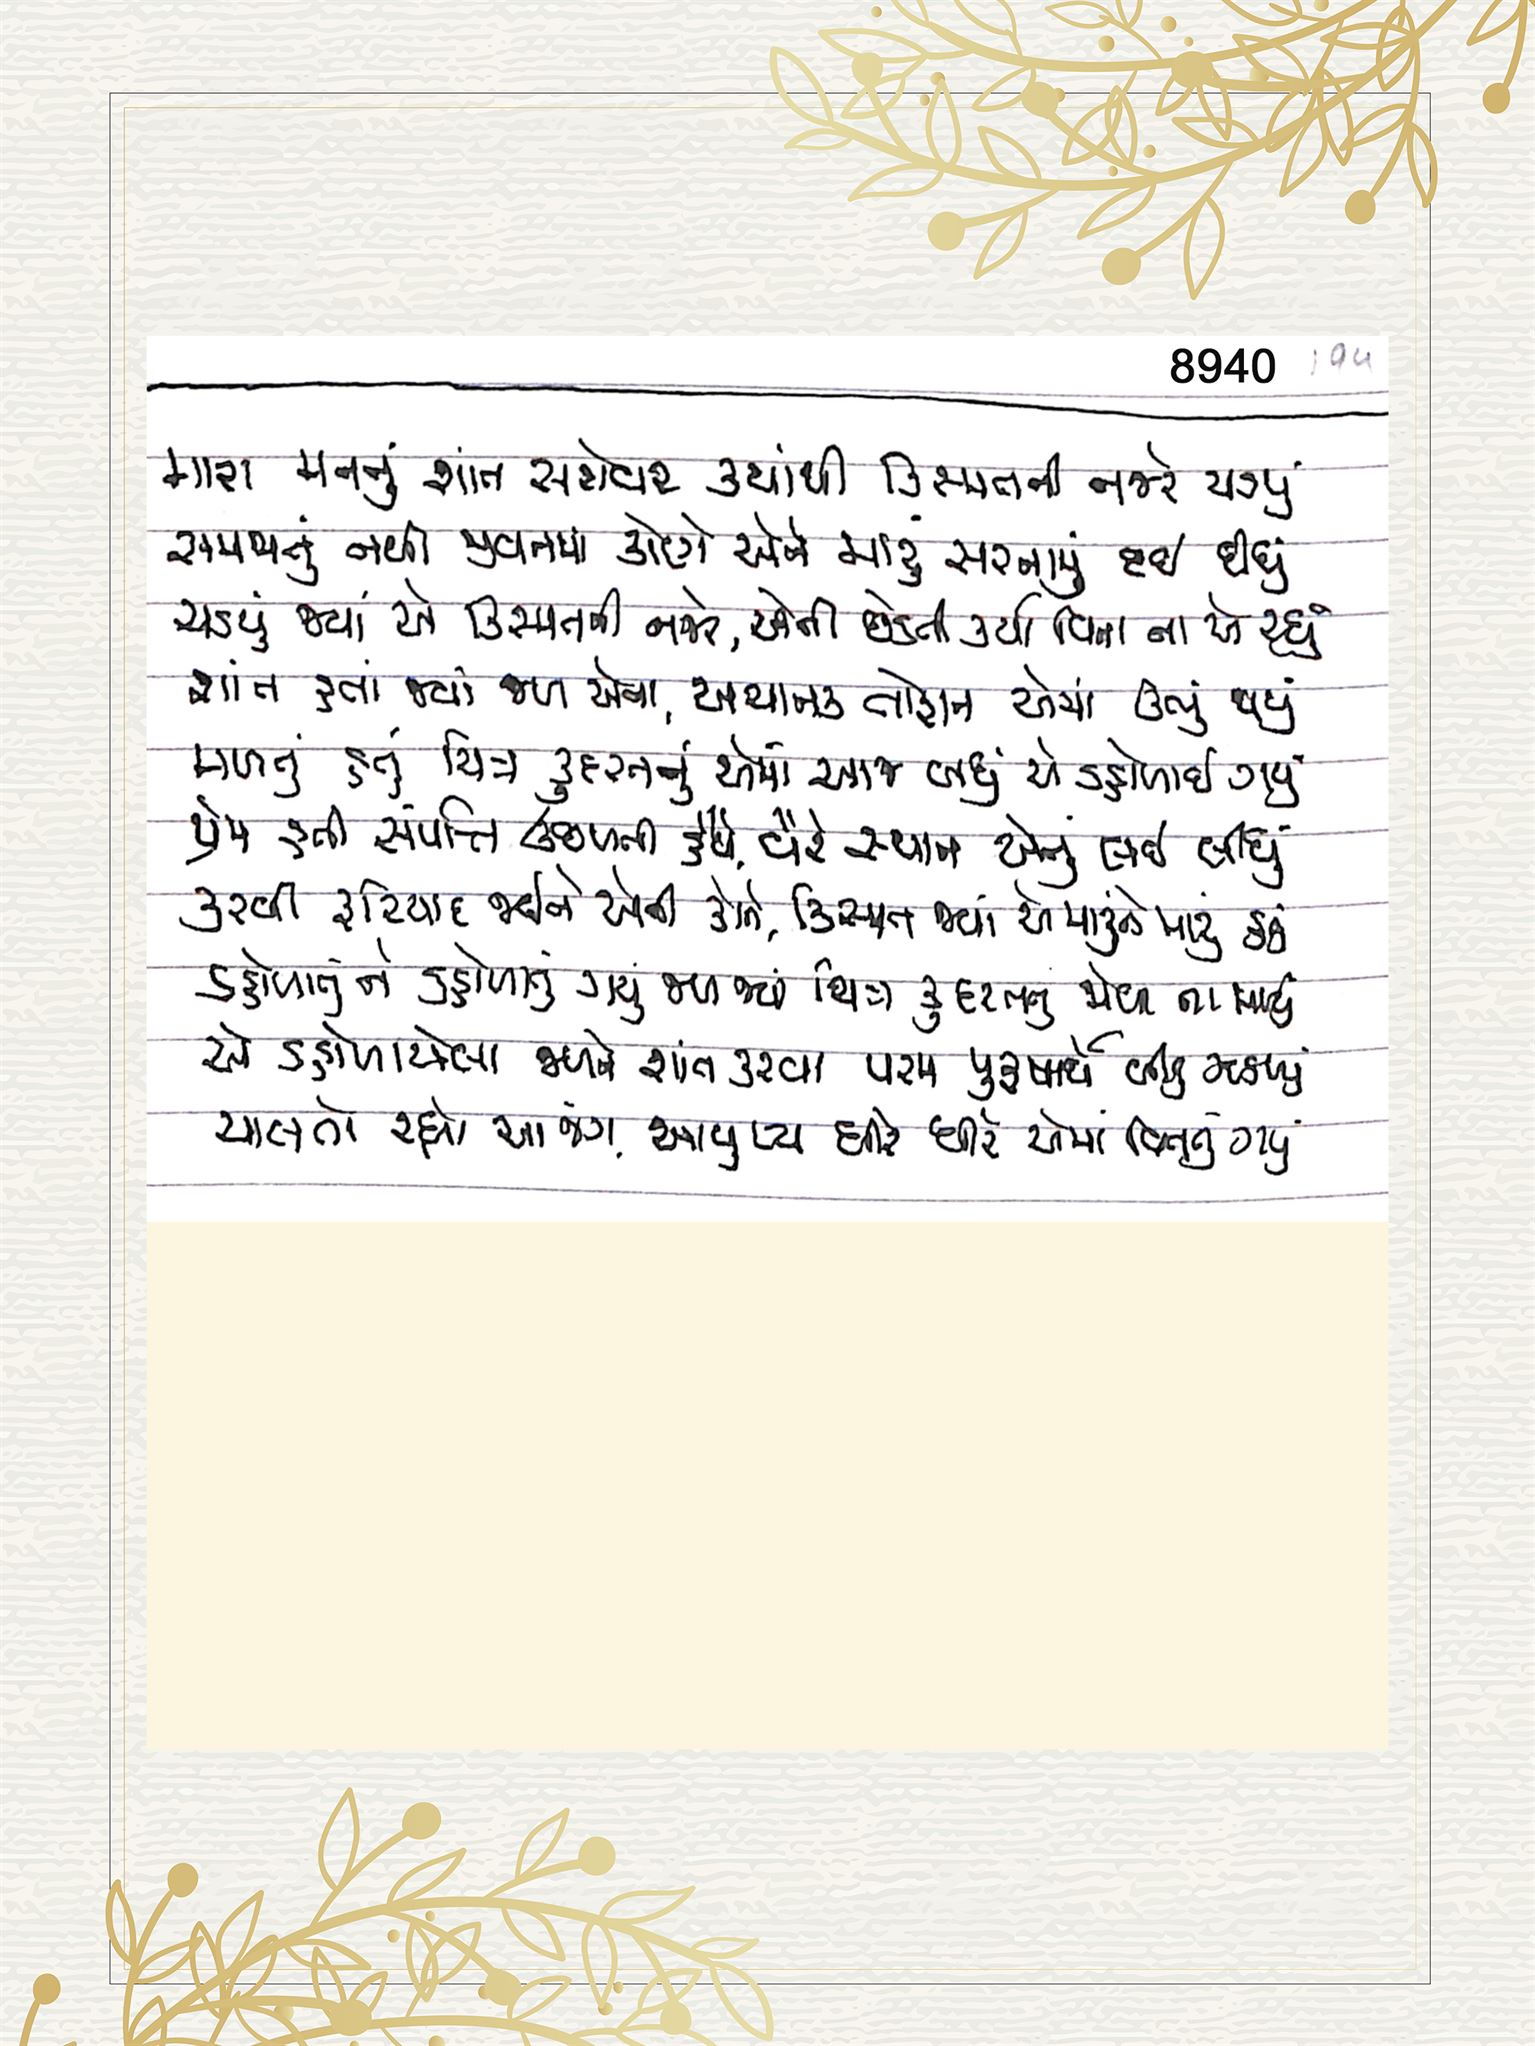 8940
મારા મનનું શાંત સરોવર ક્યાંથી કિસ્મતની નજરે ચડયું
સમયનું નથી જીવનમાં કોણે એને મારું સરનામું દઈ દીધું
ચડયું જ્યાં એ કિસ્મતની નજરે, એની છેડતી કર્યા વિના ના એ રહ્યું
શાંત હતાં જ્યાં જળ એના, અચાનક તોફાન એમાં ઊભું થયું
મળતું હતું ચિત્ર કુદરતનું એમાં આજ બધું એ ડહોળાઈ ગયું
પ્રેમ હતી સંપત્તિ ઉજળતી હૈયે, વૈરે સ્થાન એનું લઈ લીધું
કરવી ફરિયાદ જઈને એની કોને, કિસ્મત જ્યાં એ મારુંને મારું હતું
ડહોળાતું ને ડહોળાતું ગયું જળ જ્યાં ચિત્ર કુદરતનું મેળ ના ખાયું
એ ડહોળાયેલા જળને શાંત કરવા પરમ પુરૂષાર્થે
ચાલતો રહ્યો આ જંગ, આયુષ્ય ધીરે ધીરે એમાં વિતતું ગયું